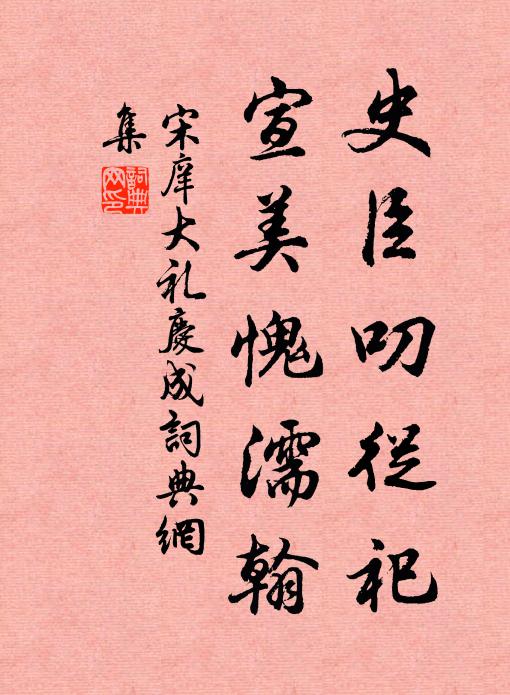 史臣叨從祀
宣美愧濡翰
宋庠大礼慶成詞典網
集
詞典
网印